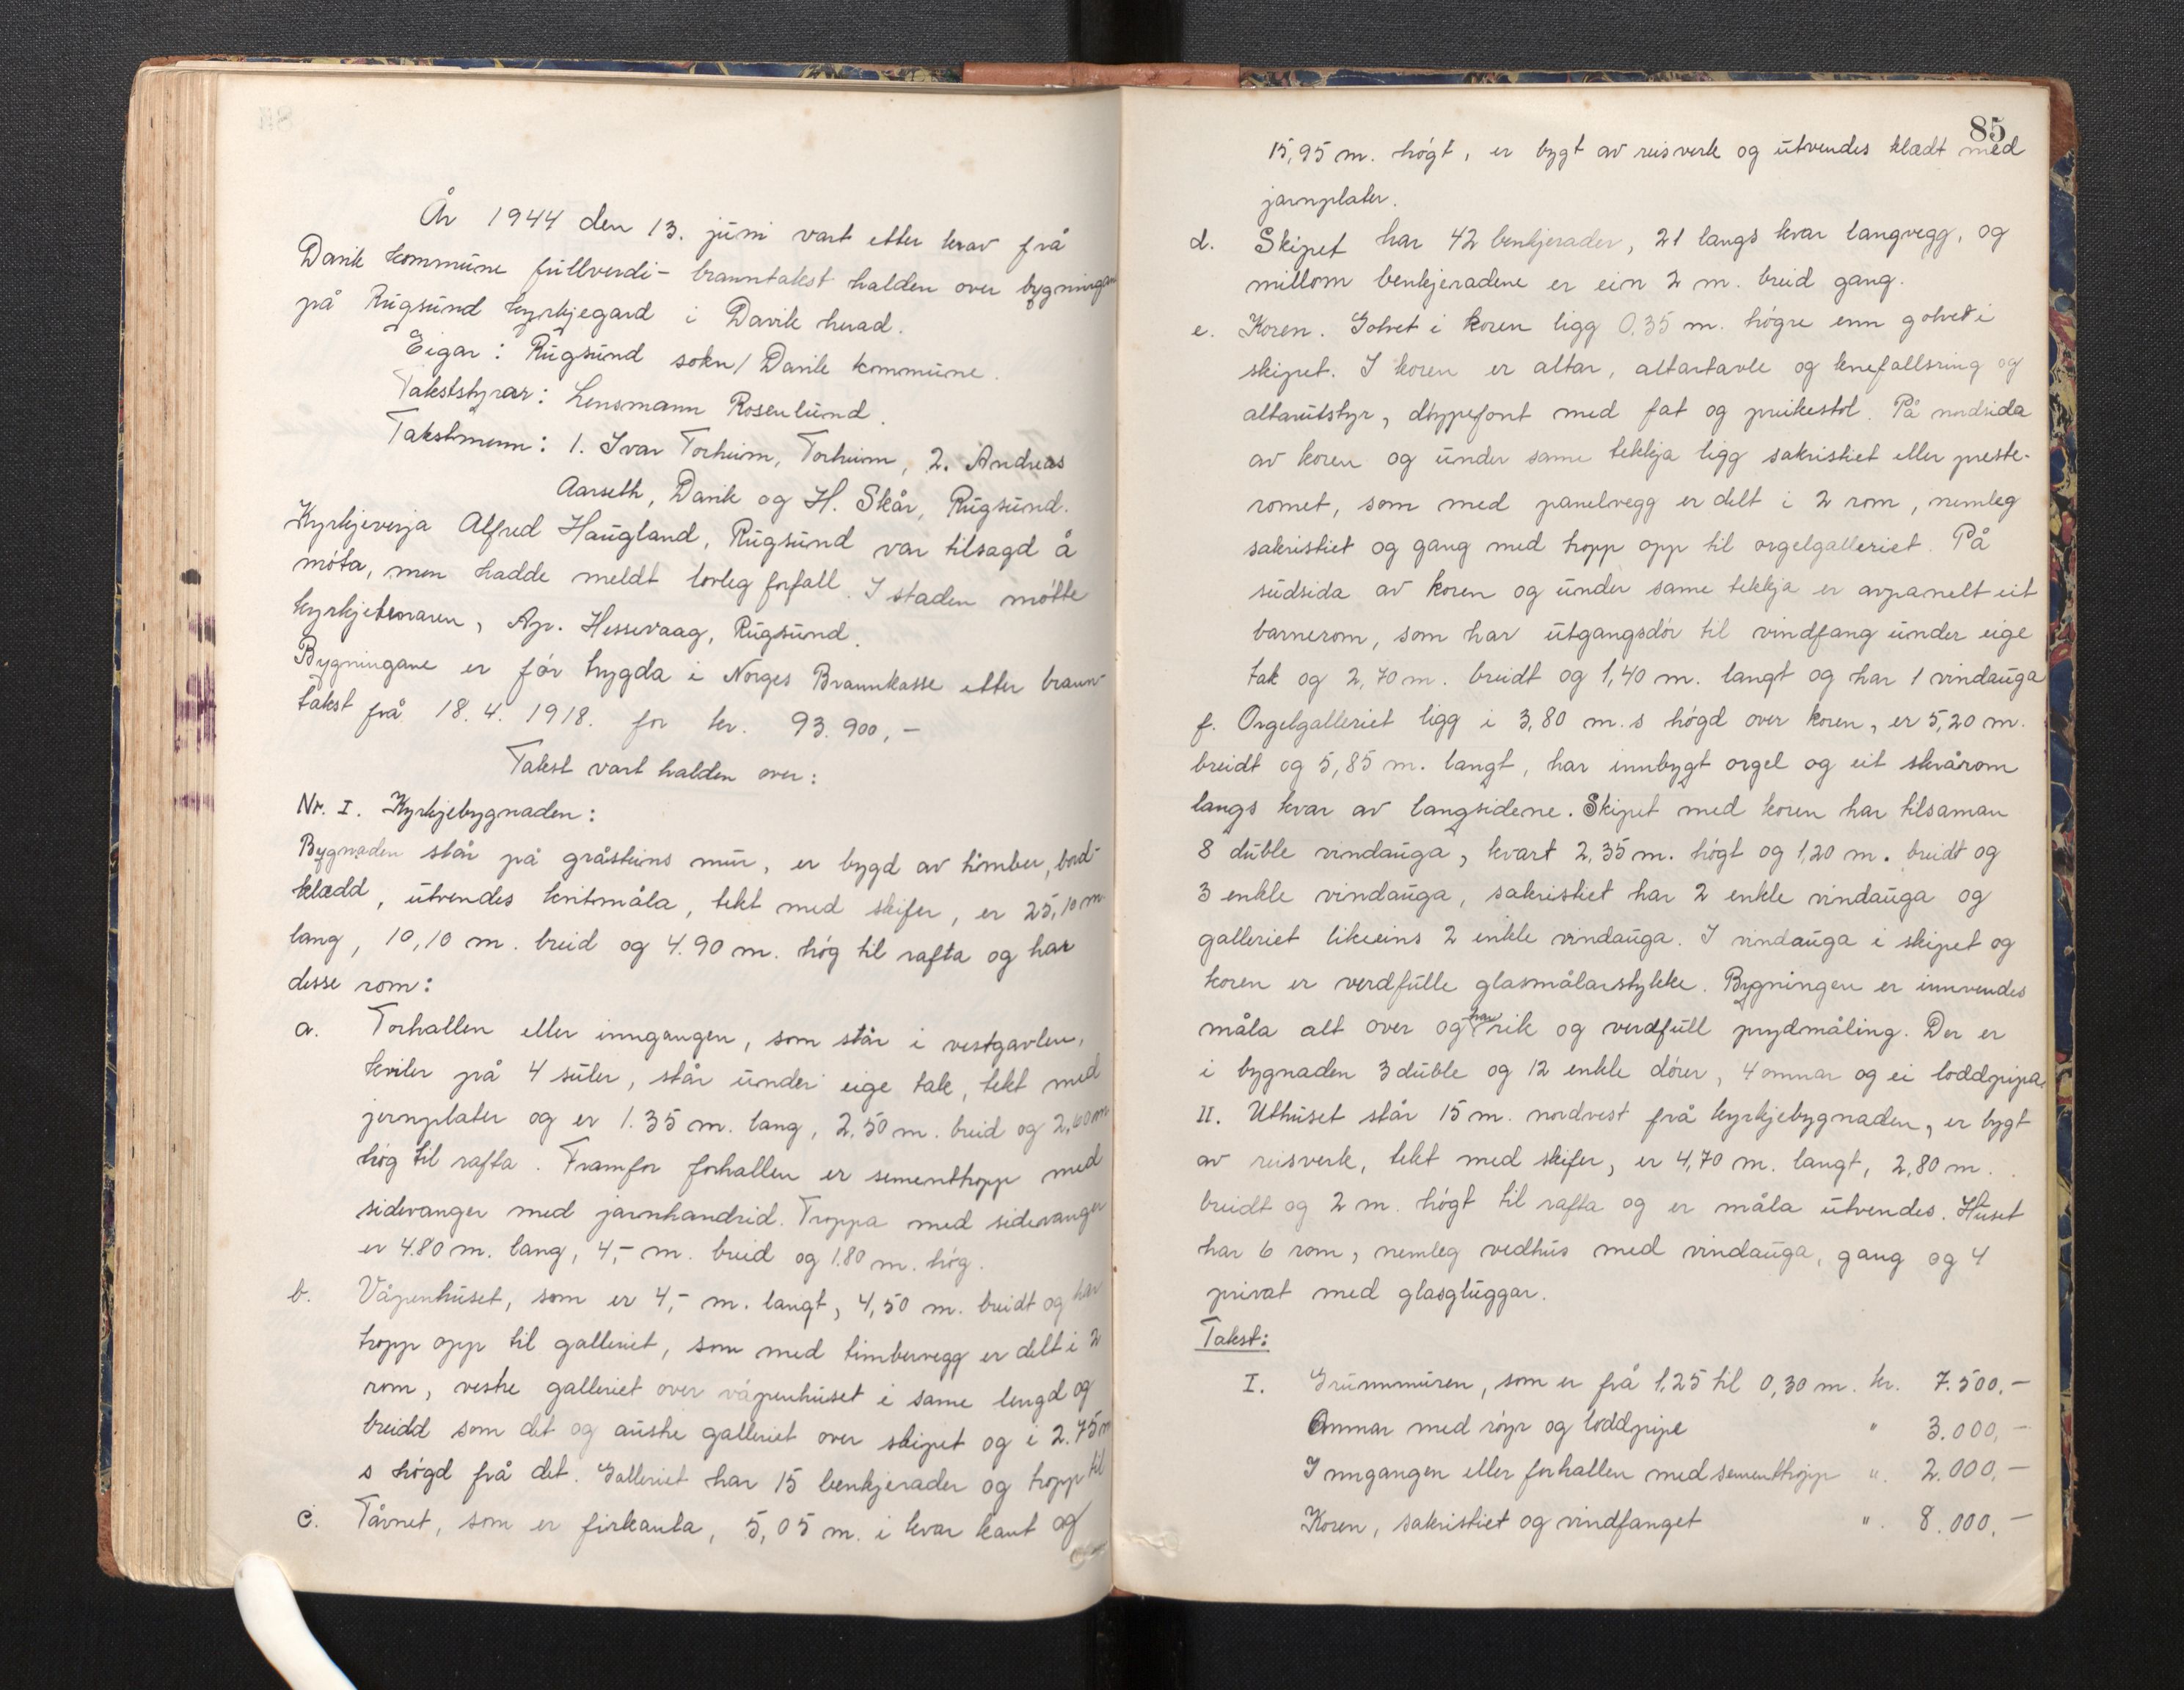 År 1944 den 13. juni vart etter krav frå
Davik kommune fullverdi- branntakst halden over bygningane
på Rugsund kyrkjegard i Davik herad.
Eigar: Rugsund sokn / Davik kommune.
Takststyrar: Lensmann Rosenlund.
Takstmenn: 1. Ivar Torheim, Torheim, 2. Andreas
Aarseth, Davik og H. Skår, Rugsund.
Kyrkjeverja Alfred Haugland, Rugsund var tilsagd å
møta, men hadde meldt lovleg forfall. I staden møtte
kyrkjetenaren, Ap. Hessevaag, Rugsund.
Bygningane er før trygda i Norges Brannkasse etter brann-
takst frå 18. 4. 1918. for kr. 93.900,-
Takst vart halden over:
Nr. I. Kyrkjebygnaden:
Bygnaden står på gråsteins mur, er bygd av timber, bord-
klædd, utvendes kvitmåla, tekt med skifer, er 25,10 m
lang, 10,10 m. breid og 4.90 m. høg til rafta og har
desse rom:
a. Forhallen eller inngangen, som står i vestgavlen,
kviler på 4 suler, står under eige tak, tekt med
jernplater og er 1.35 m. lang, 2,50 m. breid og 2,60 m
høg til rafta. Framfor forhallen er sementtropp med
sidevanger med jarnhandrid. Troppa med sidevanger
er 4.80 m. lang, 4,- m. breid og 1.80 m. høg.
b. Våpenhuset, som er 4,- m. langt, 4,50 m. breidt og har
tropp opp til galleriet, som med timbervegg er delt i 2
rom, vestre galleriet over våpenhuset i same lengd og
breidd som det og austre galleriet over skipet og i 2.75 m
s høgd frå det. Galleriet har 15 benkjerader og tropp til
c. Tårnet, som er firkanta, 5,05 m. i kvar kant og
85
15,95 m. høgt, er bygt av reisverk og utvendes klædt med
jarnplater.
d. Skipet har 42 benkjerader, 21 langs kvar langvegg, og
millom benkjeradene er ein 2 m. breid gang.
e. Koren. Golvet i koren ligg 0.35 m. høgre enn golvet i
skipet. I koren er altar, altartavle og knefallsring og
altarutstyr, døypefont med fat og preikestol. På nordsida
av koren og under same tekkja ligg sakristiet eller preste-
romet, som med panelvegg er delt i 2 rom, nemleg
sakristiet og gang med tropp opp til orgelgalleriet. På
sudsida av koren og under same tekkja er avpanelt eit
barnerom, som har utgangsdør til vindfang under eige
tak og 2,70 m. breidt og 1,40 m. langt og har 1 vindauga
f. Orgelgalleriet ligg i 3,80 m.s høgd over koren, er 5,20 m.
breidt og 5,85 m. langt, har innbygt orgel og eit skrårom
langs kvar av langsidene. Skipet med koren har tilsaman
8 duble vindauga, kvart 2,35 m. høgt og 1,20 m. breidt og
3 enkle vindauga, sakristiet har 2 enkle vindauga og
galleriet likeeins 2 enkle vindauga. I vindauga i skipet og
koren er verdfulle glasmålarstykke. Bygningen er innvendes
måla alt over og har rik og verdfull prydmåling. Der er
i bygnaden 3 duble og 12 enkle dører, 4 omnar og ei loddpipa.
II. Uthuset står 15 m. nordvest frå kyrkjebygnaden, er bygt
av reisverk, tekt med skifer, er 4,70 m. langt, 2,80 m.
breidt og 2 m. høgt til rafta og er måla utvendes. Huset
har 6 rom, nemleg vedhus med vindauga, gang og 4
privat med glasgluggar.
Takst:
I. Grunnmuren, som er frå 1,25 til 0,30 m. kr. 7.500.-
Omnar med røyr og loddpipe " 3.000,-
Inngangen eller forhallen med sementtropp ". 2.000,-
Koren, sakristiet og vindfanget ". 8.000,-